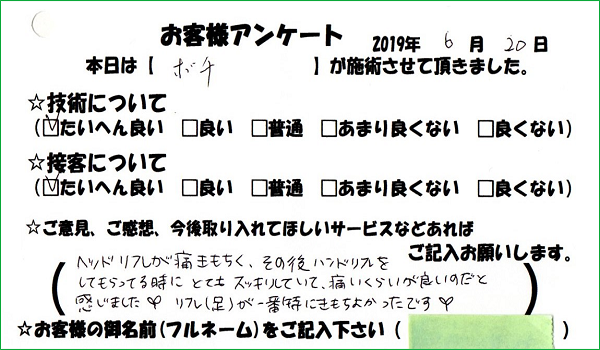 お客様アンケート 2019年 6月 20日
本日は【 ボチ 】が施術させて頂きました。
☆技術について
(☑たいへん良い □良い □普通 □あまり良くない □良くない)
☆接客について
(☑たいへん良い □良い □普通 □あまり良くない □良くない)
☆ご意見、ご感想、今後取り入れてほしいサービスなどあれば
ご記入お願いします。
ヘッドリフレが痛きもちく、その後ハンドリフレを
してもらってる時に とても スッキリしていて、痛いくらいが良いのだと
感じました♡ リフレ(足)が一番特にきもちよかったです♡
☆お客様の御名前(フルネーム)をご記入下さい ( )